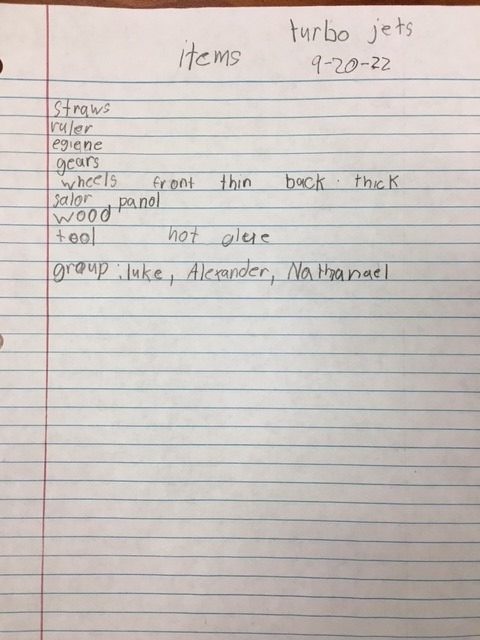 turbo jets
items 9-20-22
straws
ruler
egiene
gears
wheels front thin back thick
salor panol
wood
tool hot glere
group: luke, Alexander, Nathanael